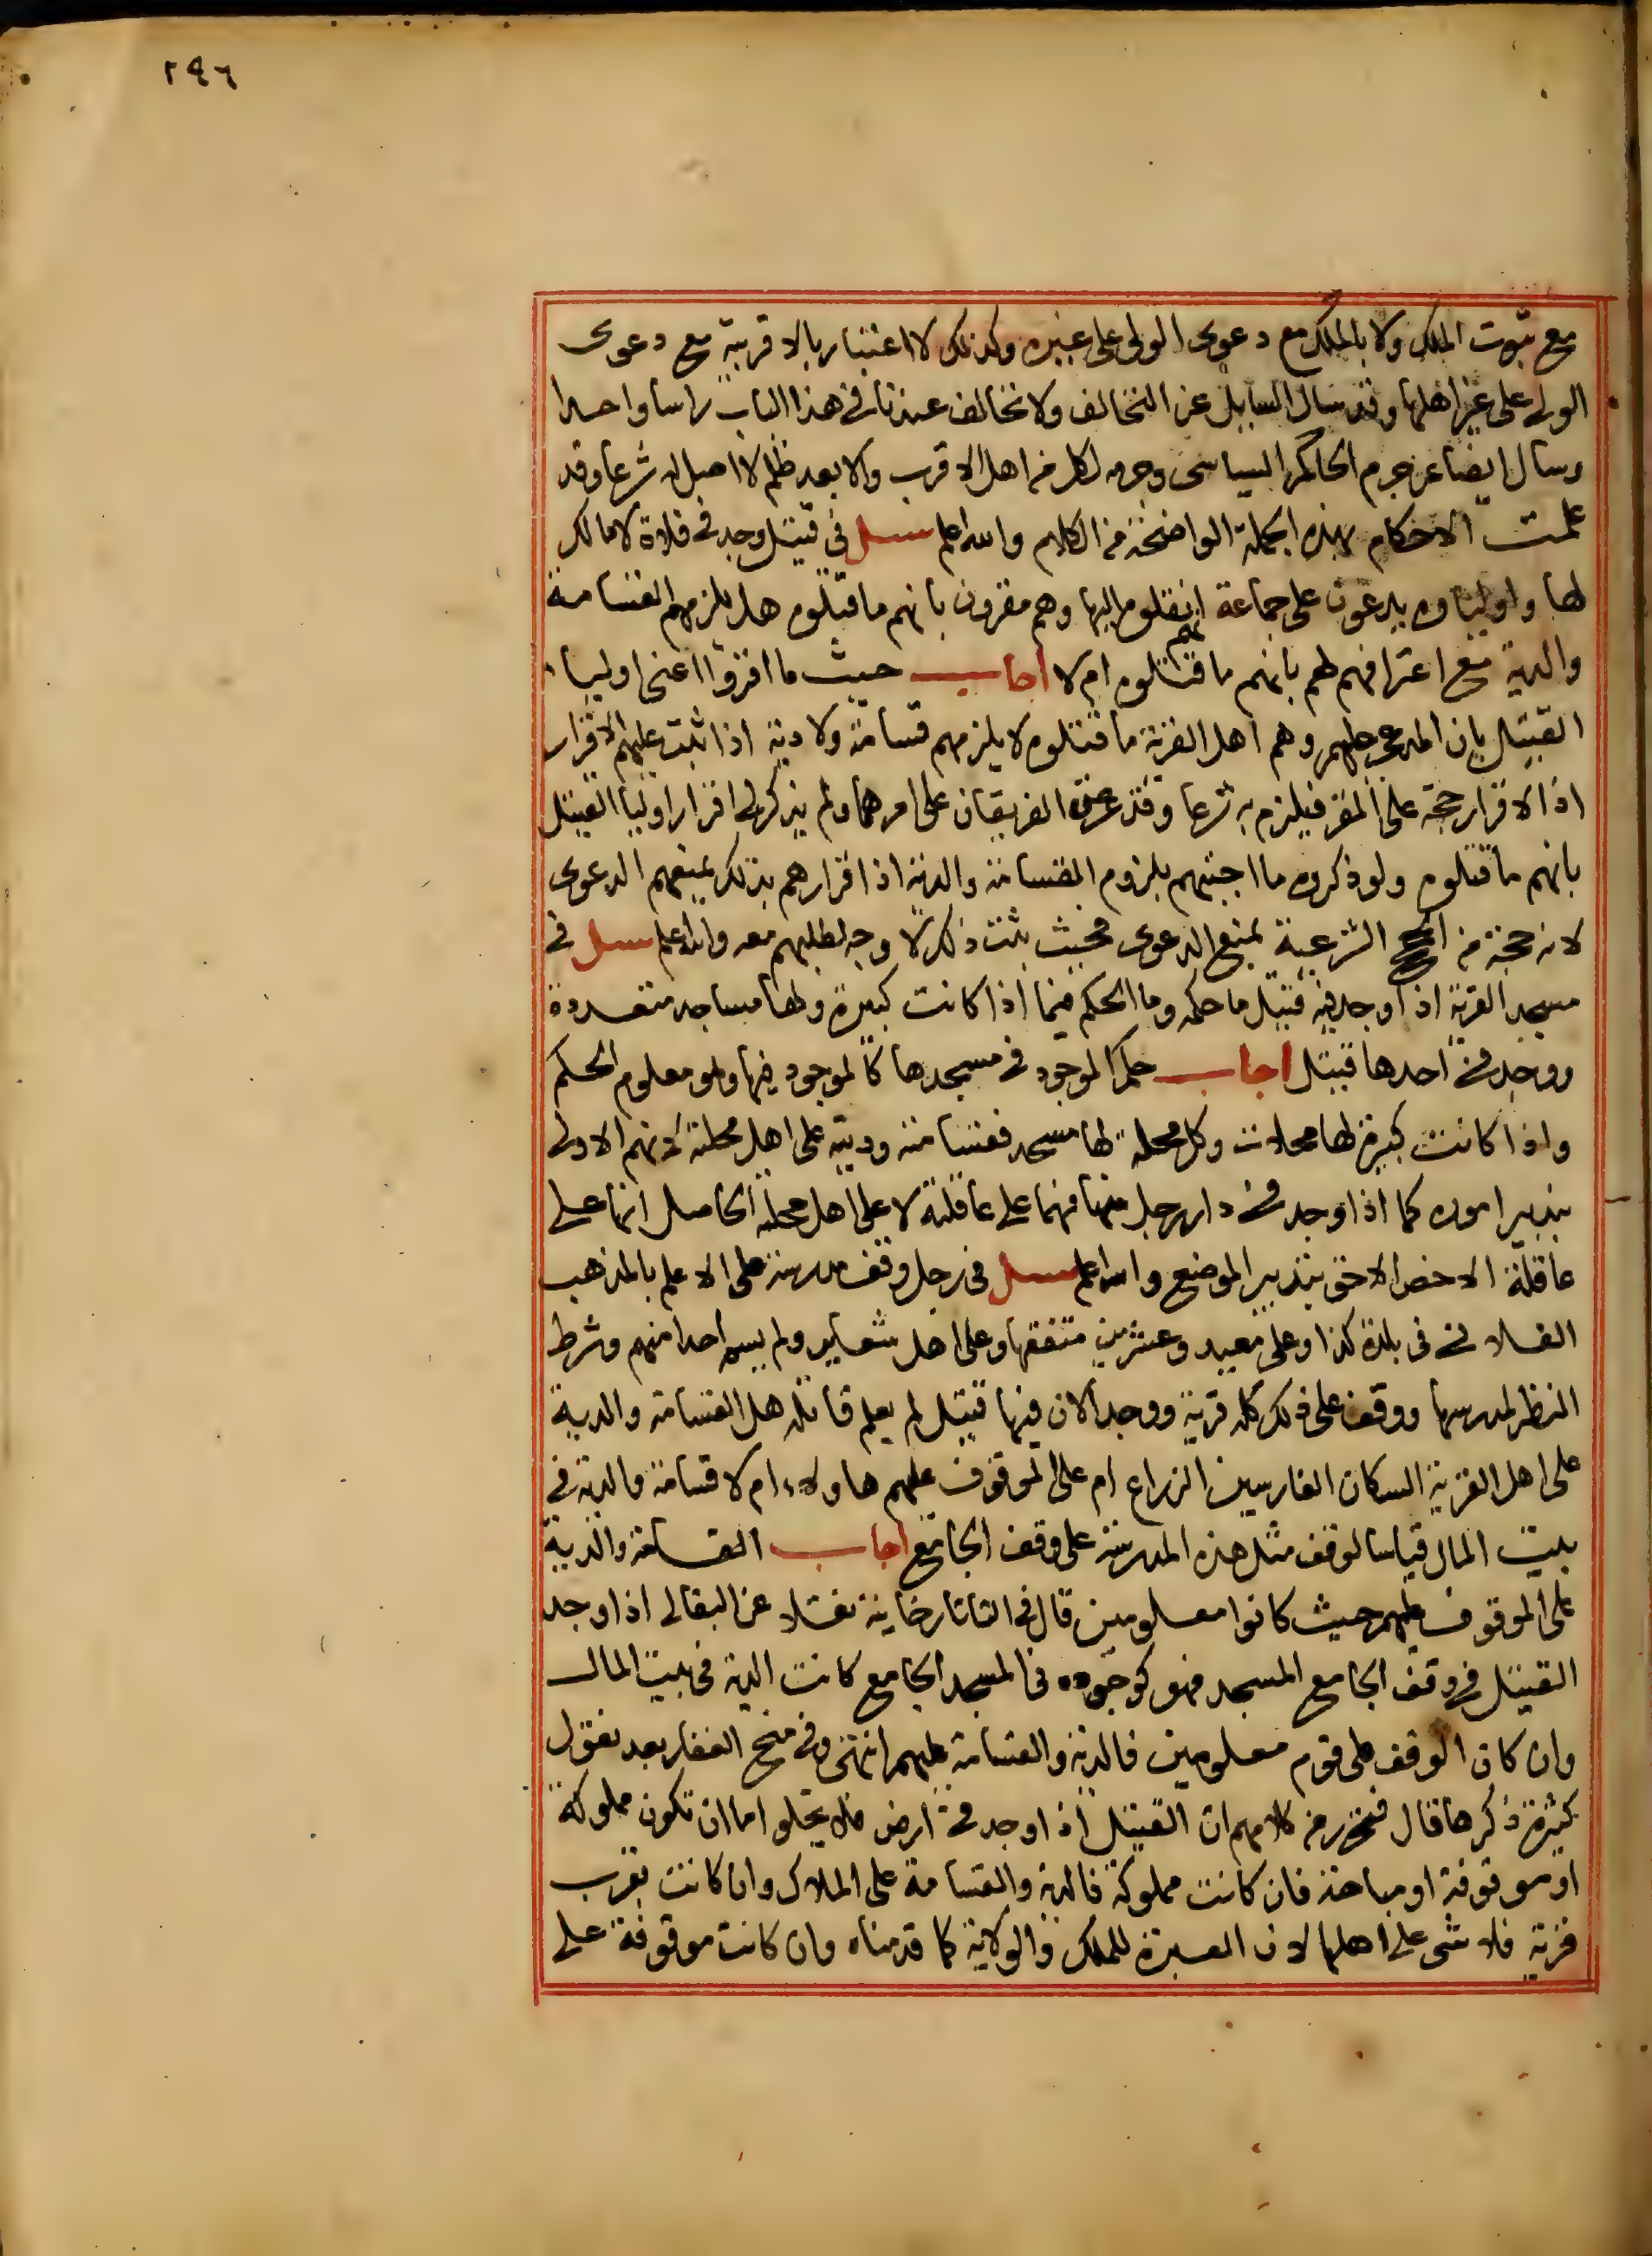 ٢٩٦
مع ثبوت الملك ولا بالملك مع دعوى الولى على غيره وكذلك لا اعتبار بالاقربية مع دعوى
الولى على غير اهلها وقد سال السايل عن التخالف ولا تخالف عندنا فى هذا الباب راسا واحدا
وسال ايضا عن جرم الحاكم السياسى وجرمه لكل من اهل الاقرب والابعد ظلم لا اصل له شرعا وقد
علمت الاحكام بهذه الجملة الواضحة من الكلام والله اعلم سئل فى قتيل وجد فى فلاة لا مالك
لها واولياوه يدعون على جماعة انهم نقلوه اليها وهم مقرون بانهم ما قتلوه هل يلزمهم القسامة
والدية مع اعترافهم لهم بانهم ما قتلوه ام لا اجاب حيث ما اقروا اعنى اوليا
القتيل بان المدعى عليهم وهم اهل القرية ما قتلوه لا يلزمهم قسامة ولا دية اذا ثبت عليهم الاقرار
اذ الاقرار حجة على المقر فيلزم به شرعا وقد عرض الفريقان على امرهما ولم يذكر لى اقرار اوليا القتيل
بانهم ما قتلوه ولو ذكروه ما اجبتهم بلزوم القسامة والدية اذ اقرارهم بذلك يمنعهم الدعوى
لانه حجة من الحجج الشرعية يمنع الدعوى فحيث ثبت ذلك لا وجه لطلبهم معه والله اعلم سئل فى
مسجد القرية اذا وجد فيه قتيل ما حكمه وما الحكم فيما اذا كانت كبيرة ولها مساجد متعددة
ووجد فى احدها قتيل اجاب حكم الموجود فى مسجدها كالموجود فيها وهو معلوم الحكم
واذا كانت كبيرة لها محلات وكل محلة لها مسجد فقسامته وديته على اهل محلته لانهم الاولى
بتدبير اموره كما اذا وجد فى دار رجل منها فهما على عاقلته لا على اهل محلته الحاصل انها على
عاقلة الاخص الاحق بتدبير الموضع والله اعلم سئل فى رجل وقف مدرسة على الاعلم بالمذهب
الفلانى فى بلدة كذا وعلى معيد وعشرين متفقها وعلى اهل شعاير ولم يسم احدا منهم وشرط
النظر لمدرسها ووقف على ذلك كله قرية ووجد الان فيها قتيل لم يعلم قاتله هل القسامة والدية
على اهل القرية السكان الفارسين الزراع ام على الموقوف عليهم هاولاء ام لا قسامة والدية فى
بيت المال قياسا لوقف مثل هذه المدرسة على وقف الجامع اجاب القسامة والدية
على الموقوف عليهم حيث كانوا معلومين قال فى التاتارخانية نقلا عن البقالى اذا وجد
القتيل فى وقف الجامع المسجد فهو كوجوده فى المسجد الجامع كانت الدية فى بيت المال
وان كان الوقف على قوم معلومين فالدية والقسامة عليهم انتهى وفى منح الغفار بعد نقول
كثيرة ذكرها قال فتحرر من كلامهم ان القتيل اذا وجد فى ارض فلا يخلو اما ان تكون مملوكة
او موقوفة او مباحة فان كانت مملوكة فالدية والقسامة على الملاك وان كانت بقرب
قرية فلا شى على اهلها لان العبرة للملك والولاية كما قدمناه وان كانت موقوفة على